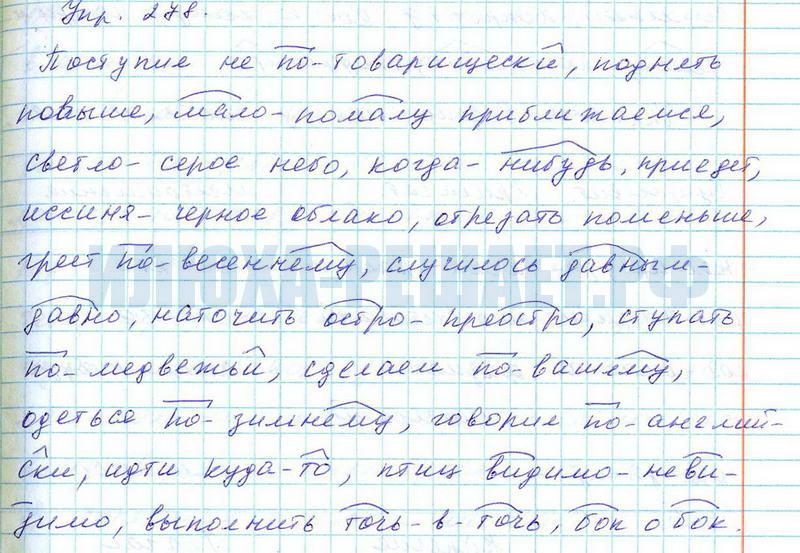 Упр. 278.
Поступил не по-товарищески, поднять
повыше, мало-помалу приближаемся,
светло-серое небо, когда-нибудь приедет,
иссиня-черное облако, отрезать поменьше,
греет по-весеннему, случилось давным-
ИЛЮХА-РЕШАЕТ.РФ
давно, наточить остро-преостро, ступать
по-медвежьи, сделаем по-вашему,
одеться по-зимнему, говорил по-англий-
ски, идти куда-то, птиц видимо-неви-
димо, выполнить точь-в-точь, бок о бок.